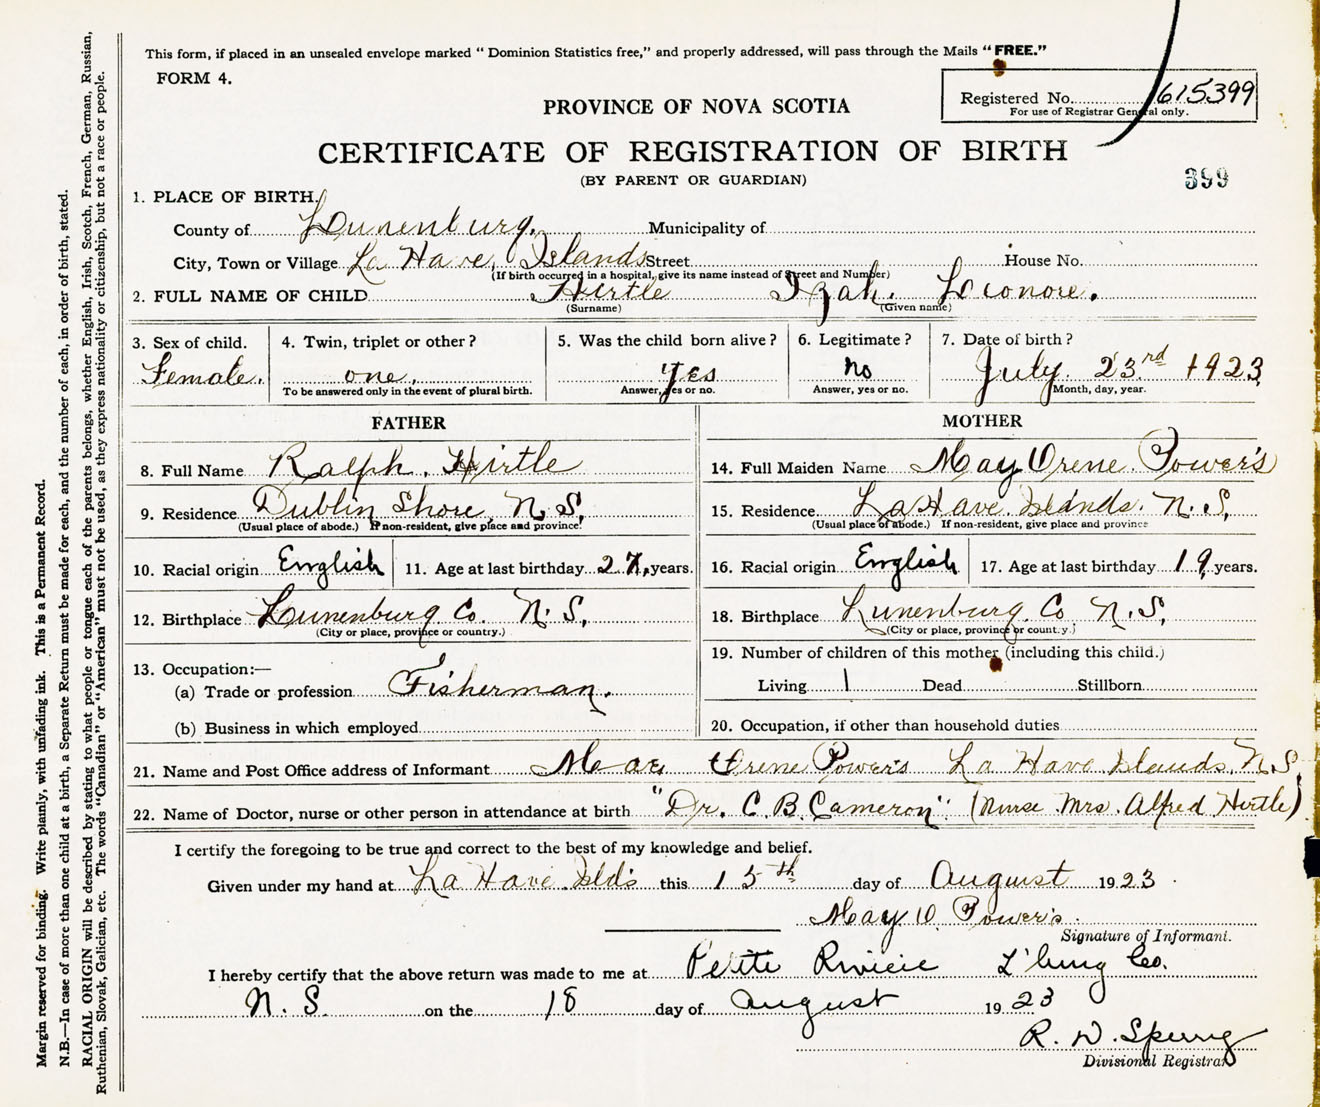 This form, if placed in an unsealed envelope marked “ Dominion Statistics free,” and properly addressed, will pass through the Mails “ FREE.”
FORM 4.
Registered No. 615399
For use of Registrar General only.
PROVINCE OF NOVA SCOTIA
CERTIFICATE OF REGISTRATION OF BIRTH
(BY PARENT OR GUARDIAN)
399
1. PLACE OF BIRTH.
County of Lunenburg. Municipality of
City, Town or Village La Have, Islands Street House No.
(If birth occurred in a hospital, give its name instead of Street and Number)
2. FULL NAME OF CHILD Hirtle Izah. Leonore.
(Surname) (Given name)
3. Sex of child. 4. Twin, triplet or other? 5. Was the child born alive? 6. Legitimate? 7. Date of birth?
Female. one. Yes no July 23rd 1923
To be answered only in the event of plural birth. Answer, yes or no. Answer, yes or no. Month, day, year.
FATHER MOTHER
8. Full Name Ralph. Hirtle 14. Full Maiden Name May Orene. Power's
9. Residence Dublin Shore N.S. 15. Residence La Have Islands. N.S.
(Usual place of abode.) If non-resident, give place and province. (Usual place of abode.) If non-resident, give place and province
10. Racial origin English 11. Age at last birthday 27, years. 16. Racial origin English 17. Age at last birthday 19, years.
12. Birthplace Lunenburg Co. N.S. 18. Birthplace Lunenburg. Co N.S.
(City or place, province or country.) (City or place, province or country.)
13. Occupation:— 19. Number of children of this mother (including this child.)
(a) Trade or profession Fisherman. Living 1 Dead Stillborn
(b) Business in which employed 20. Occupation, if other than household duties
21. Name and Post Office address of Informant May Orene Power's La Have Islands, N.S.
22. Name of Doctor, nurse or other person in attendance at birth "Dr. C. B. Cameron" (Nurse Mrs. Alfred Hirtle)
I certify the foregoing to be true and correct to the best of my knowledge and belief.
Given under my hand at La Have Isld's this 15th day of August 1923
May O. Power's
Signature of Informant.
I hereby certify that the above return was made to me at Petite Riviere L'burg Co.
N. S. on the 18 day of August 1923
R. D. Sperry
Divisional Registrar
Margin reserved for binding. Write plainly, with unfading ink. This is a Permanent Record.
N.B.—In case of more than one child at a birth, a Separate Return must be made for each, and the number of each, in order of birth, stated.
RACIAL ORIGIN will be described by stating to what people or tongue each of the parents belongs, whether English, Irish, Scotch, French, German, Russian,
Ruthenian, Slovak, Galician, etc. The words "Canadian" or "American" must not be used, as they express nationality or citizenship, but not a race or people.